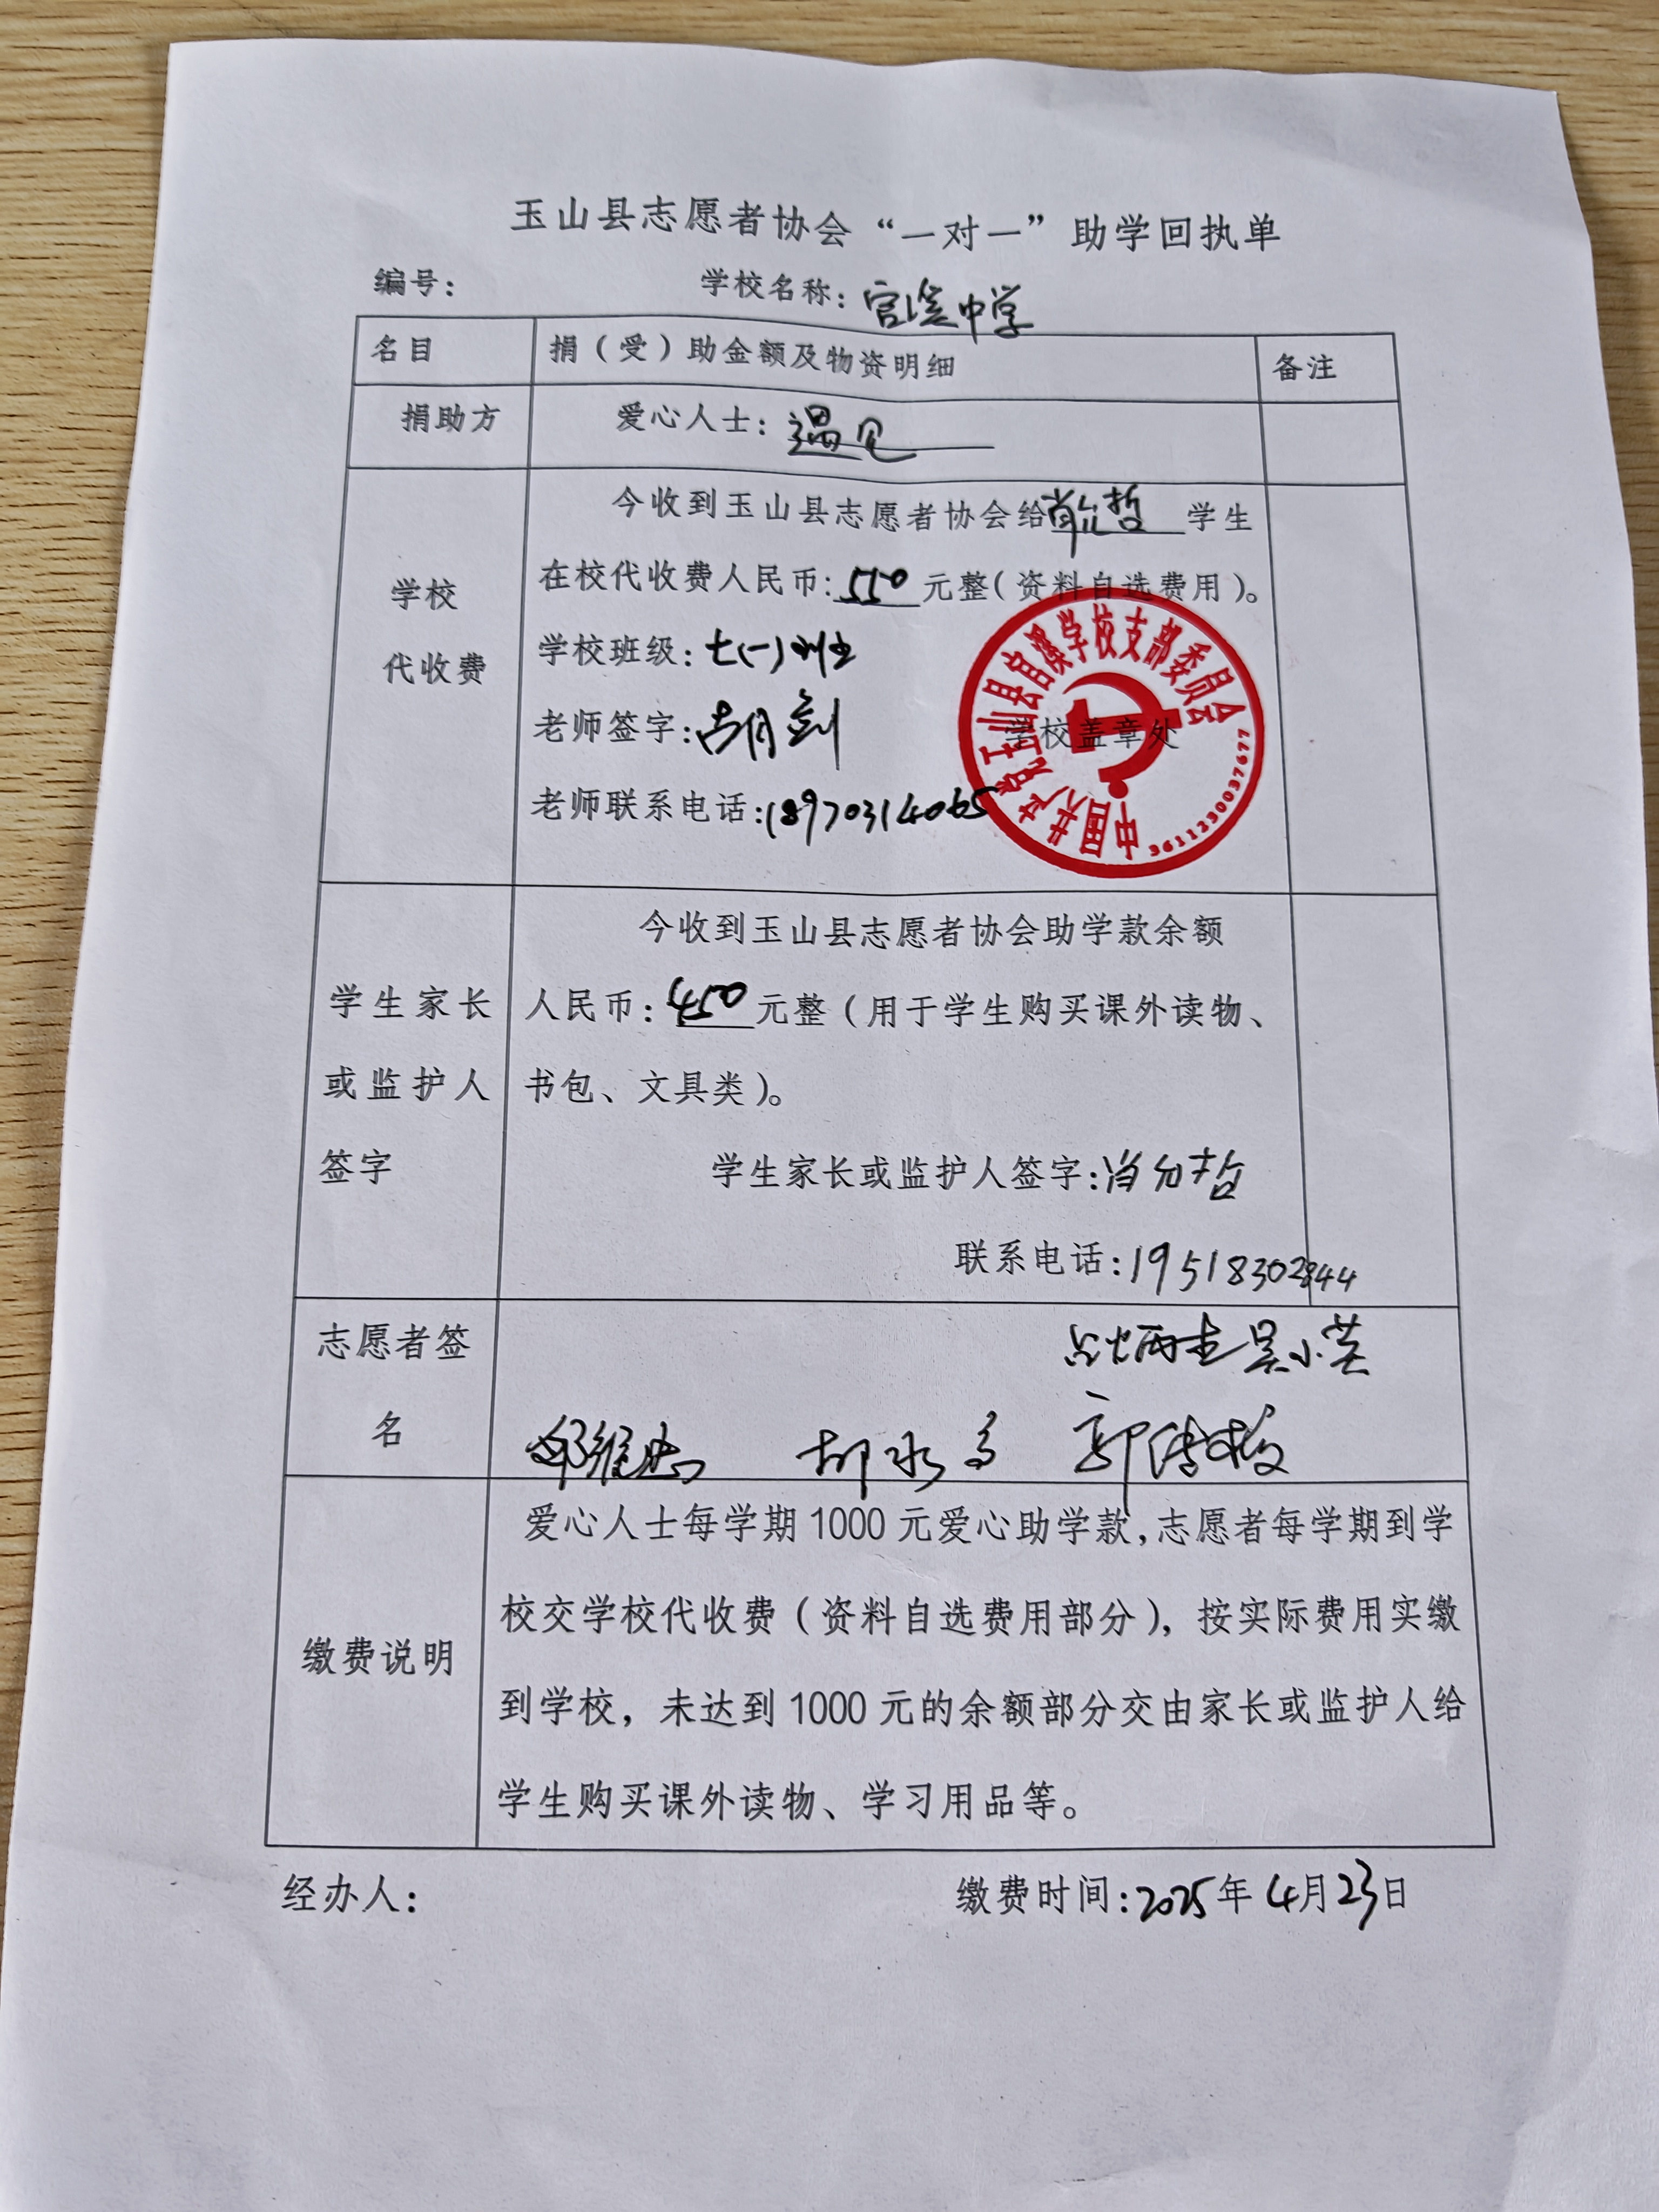 玉山县志愿者协会“一对一”助学回执单
编号： 学校名称：官溪中学
名目 捐（受）助金额及物资明细 备注
捐助方 爱心人士：遇见
学校
代收费
今收到玉山县志愿者协会给肖允哲学生
在校代收费人民币：550元整（资料自选费用）。
学校班级：七(一)班
老师签字：胡剑
老师联系电话：18970314065
学校盖章处
中国共产党玉山县官溪学校支部委员会
3611230037677
学生家长
或监护人
签字
今收到玉山县志愿者协会助学款余额
人民币：450元整（用于学生购买课外读物、
书包、文具类）。
学生家长或监护人签字：肖允哲
联系电话：19518302844
志愿者签
名
吴小英
郑维忠 胡水 郭传梅
缴费说明
爱心人士每学期1000元爱心助学款，志愿者每学期到学
校交学校代收费（资料自选费用部分），按实际费用实缴
到学校，未达到1000元的余额部分交由家长或监护人给
学生购买课外读物、学习用品等。
经办人： 缴费时间：2025年4月23日